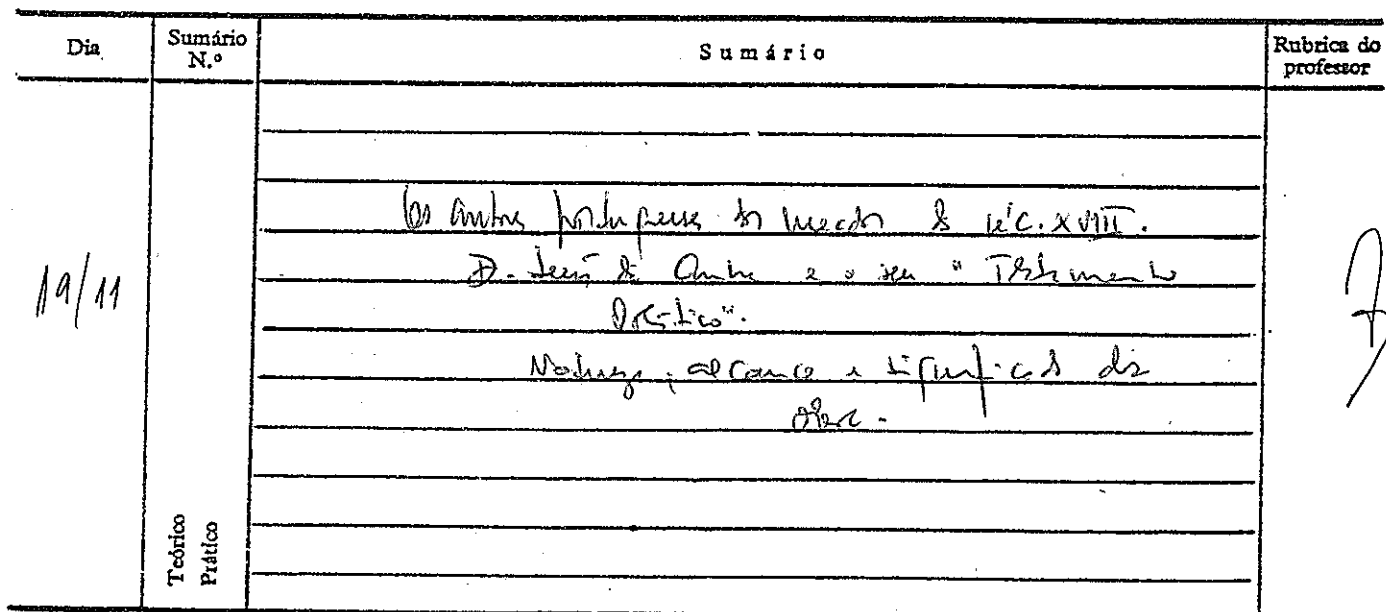 Dia
Sumário N.º
Sumário
Rubrica do professor
19/11
Os autores portugueses de meados do séc. XVIII.
D. Luís da Cunha e o seu "Testamento
Político".
Natureza, alcance e significado da
obra.
Teórico
Prático